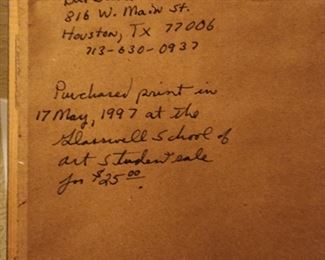 816 W. Main St.
Houston, TX 77006
713-630-0937
Purchased print in
17 May, 1997 at the
Glasswell School of
art Student sale
for $25.00